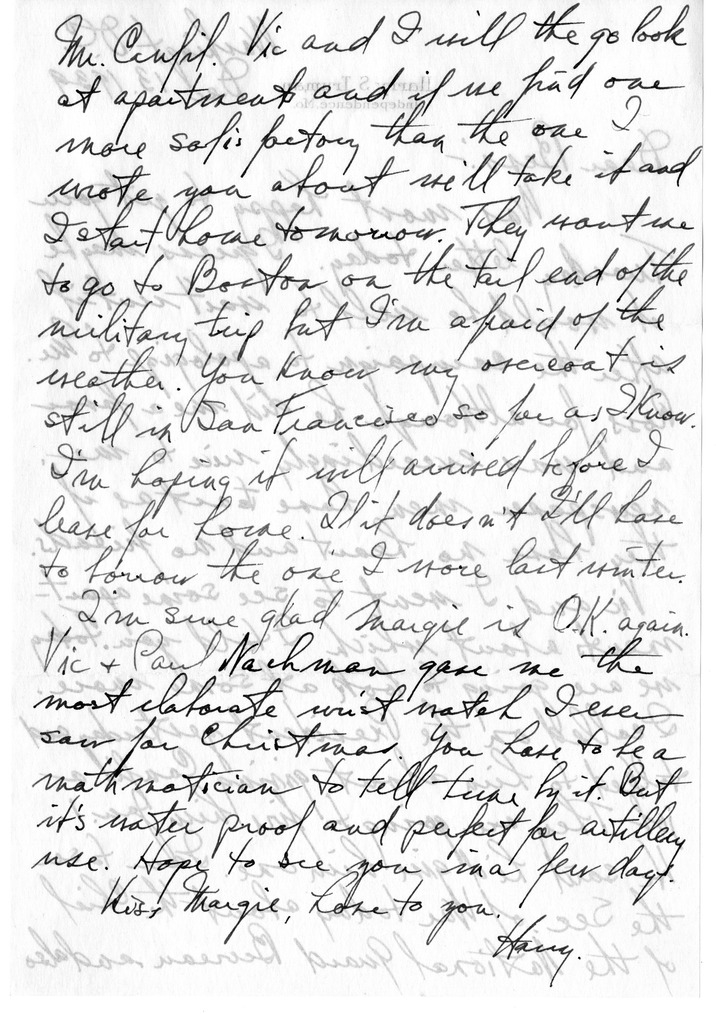 Mr. Canfil. Vic and I will the go look
at apartments and if we find one
more satisfactory than the one I
wrote you about we'll take it and
I start home tomorrow. They want me
to go to Boston on the tail end of the
military trip but I'm afraid of the
weather. You know my overcoat is
still in San Francisco so far as I know.
I'm hoping it will arrived before I
leave for home. If it doesn't I'll have
to borrow the one I wore last winter.
I'm sure glad Margie is O.K. again.
Vic + Paul Nachman gave me the
most elaborate wrist watch I ever
saw for Christmas. You have to be a
mathmatician to tell time by it. But
it's water proof and perfect for artillery
use. Hope to see you in a few days.
Kiss Margie, love to you.
Harry.